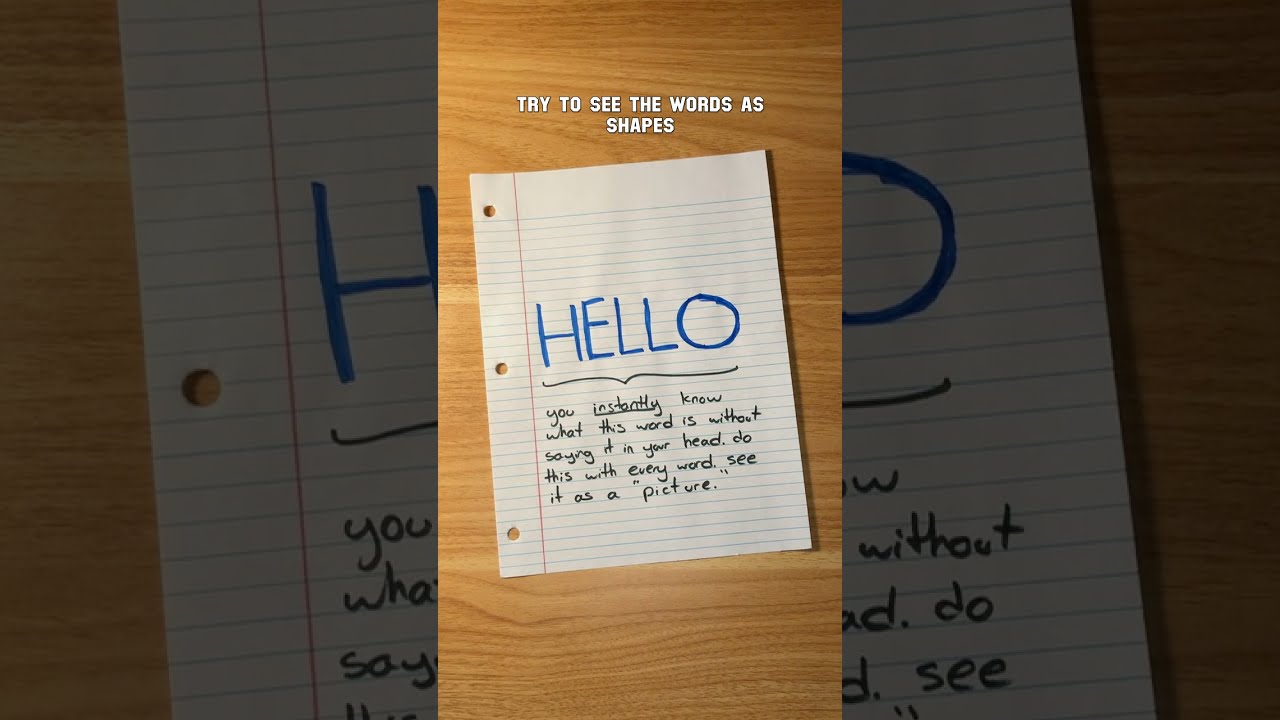 TRY TO SEE THE WORDS AS
SHAPES
HELLO
you instantly know
what this word is without
saying it in your head. do
this with every word. see
it as a "picture."